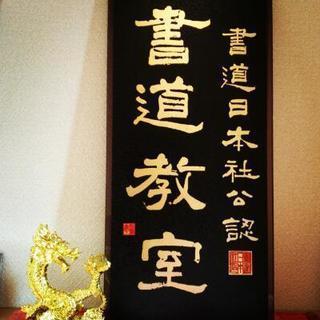 書道日本社公認
書道教室